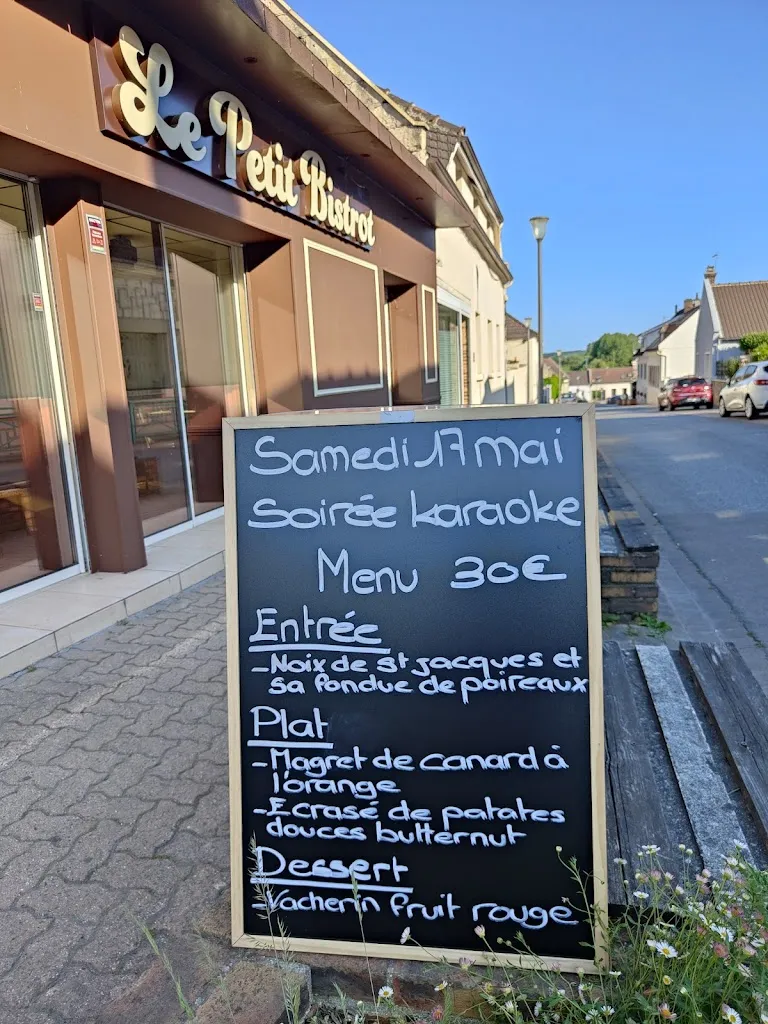 Le Petit Bistrot
Samedi 17 mai
Soirée karaoke
Menu 30€
Entrée
-Noix de st jacques et
sa fondue de poireaux
Plat
-Magret de canard à
l'orange
-Ecrasé de patates
douces butternut
Dessert
-Vacherin fruit rouge